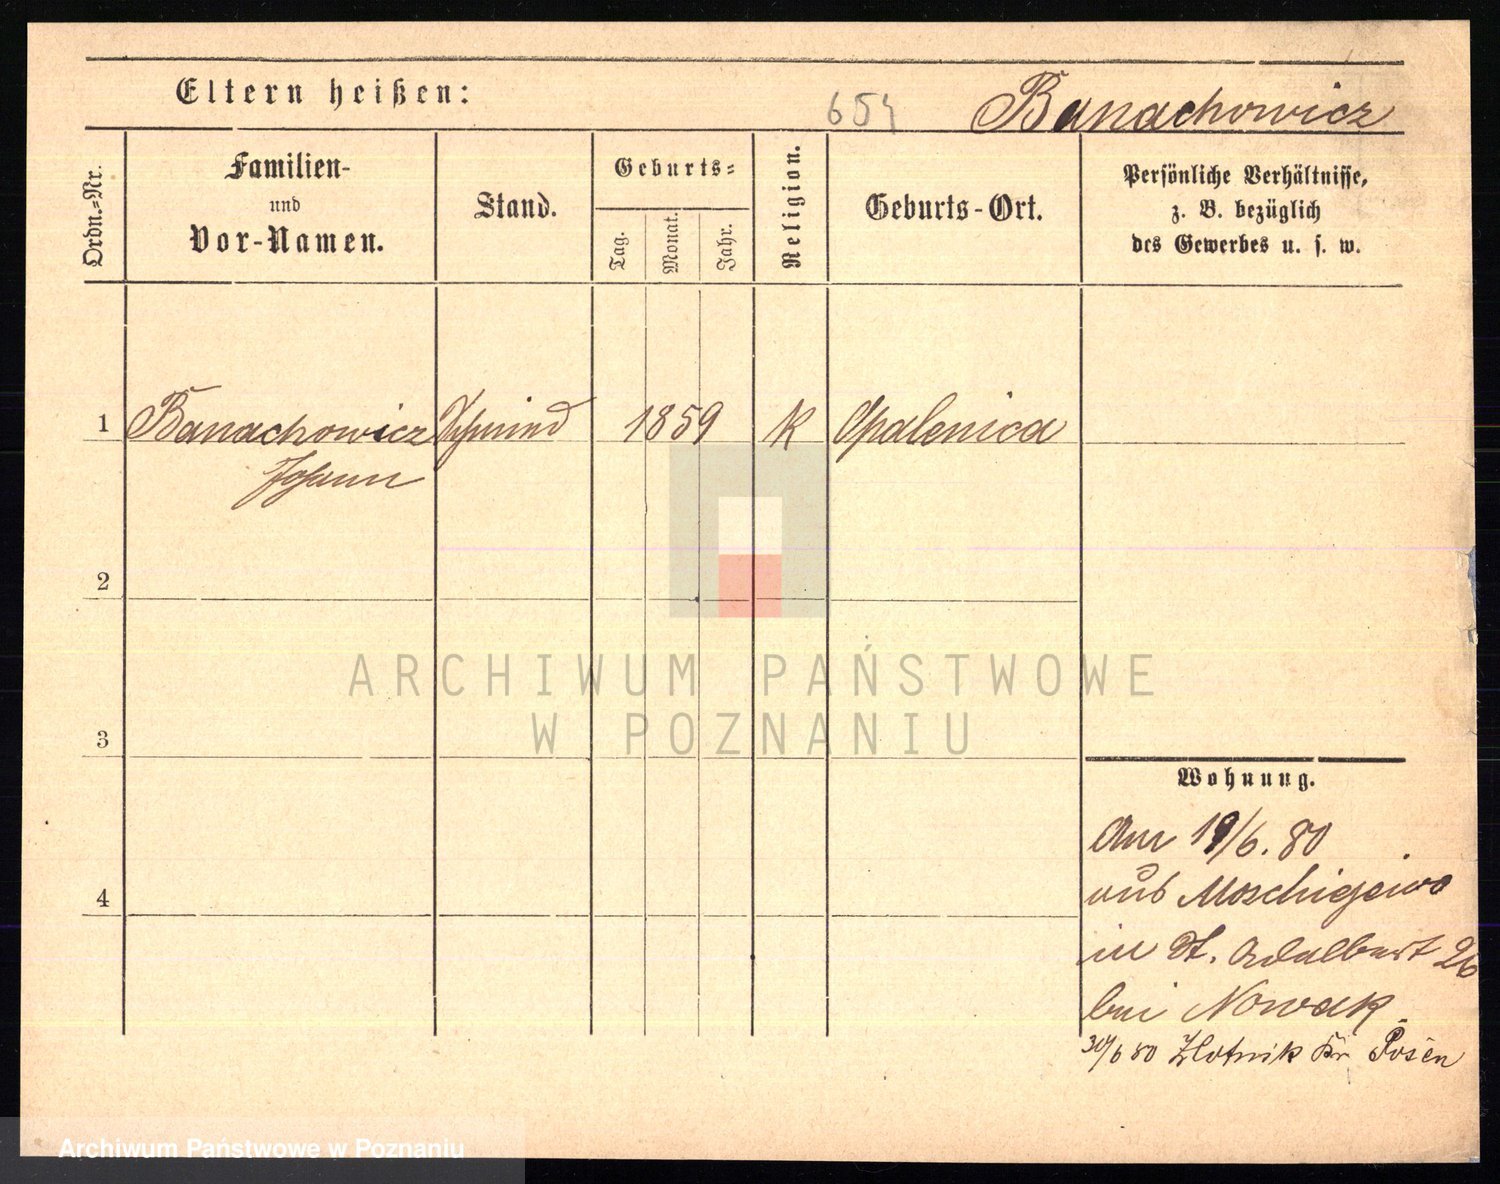 Eltern heißen:
654
Banachowicz
Ordn.-Nr.
Familien-
und
Vor-Namen.
Stand.
Geburts-
Tag.
Monat.
Jahr.
Religion.
Geburts-Ort.
Persönliche Verhältnisse,
z. B. bezüglich
des Gewerbes u. s. w.
1
Banachowicz
Johann
1859
K
Opalenica
2
3
4
Wohnung.
Am 19/6. 80
aus Moschigewo
in St. Adalbert 26
bei Nowak
30/6 80 Zlotnik Kr Posen
ARCHIWUM PAŃSTWOWE
W POZNANIU
Archiwum Państwowe w Poznaniu